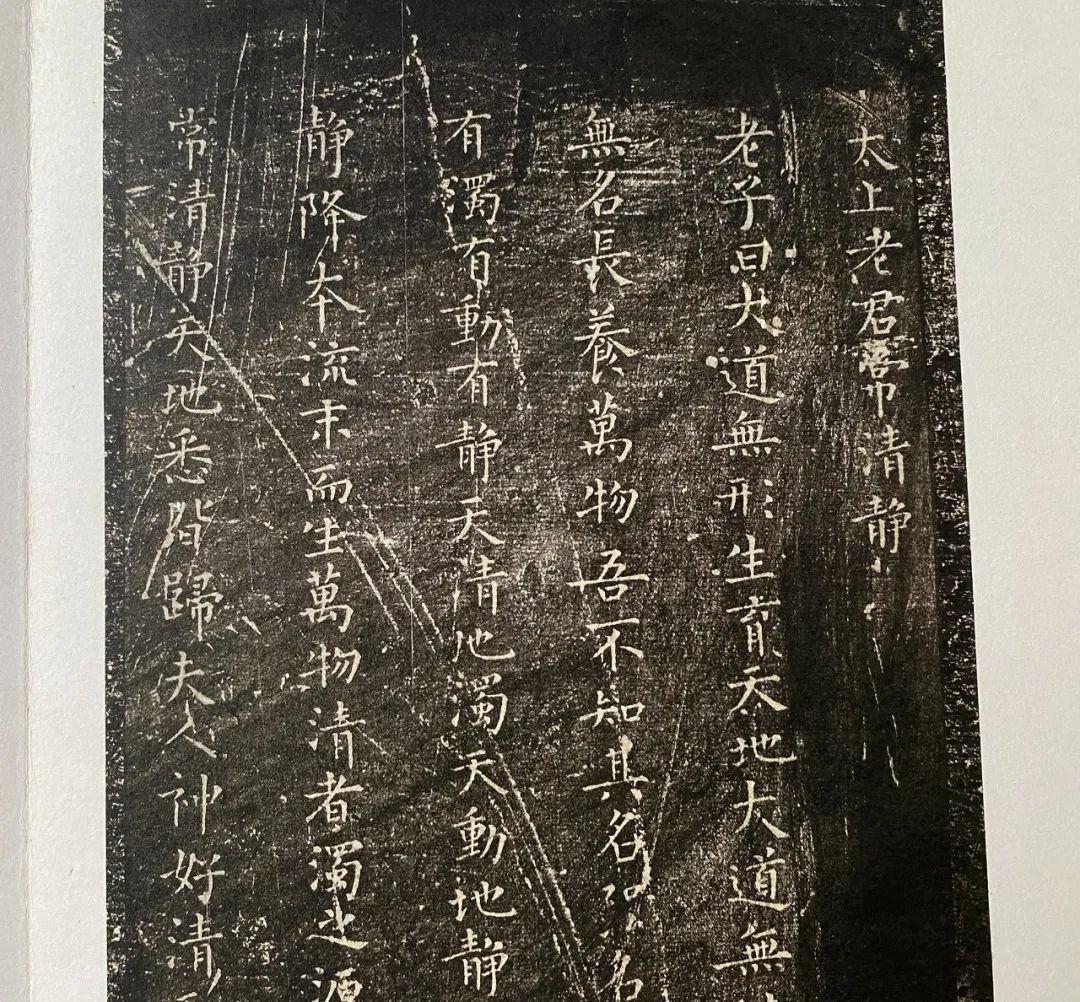 太上老君常清静
老子曰大道無形生育天地大道無
無名長養萬物吾不知其名强名
有濁有動有静天清地濁天動地静
静降本流末而生萬物清者濁之源
常清静天地悉皆歸夫人神好清